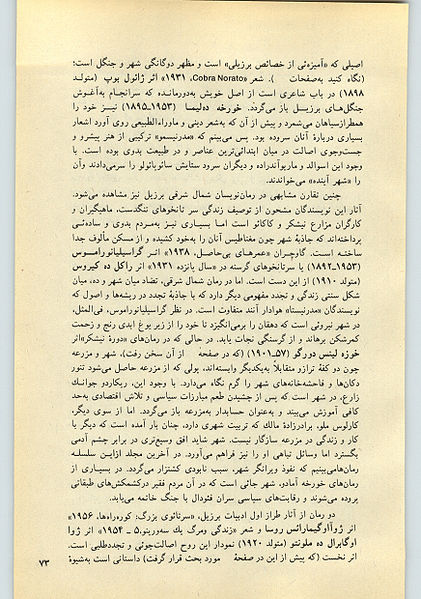 اصیلی که «آمیزه‌ئی از خصائص برزیلی» است و مظهر دوگانگی شهر و جنگل است:
(نگاه کنید به‌صفحات ). شعر «Cobra Norato، ۱۹۳۱» اثر رائول بوپ (متولد
۱۸۹۸) در باب شاعری است از اصل خویش به‌دورمانده که سرانجام به‌آغوش
جنگل‌های برزیل باز می‌گردد. خورخه ده‌لیما (۱۹۵۳ـ۱۸۹۵) نیز خود را
همطراز سیاهان می‌شمرد و پیش از آن که به‌شعر دینی و ماوراءالطبیعی روی آورد اشعار
بسیاری دربارهٔ آنان سروده بود. پس می‌بینم که «مدرنیسمو» ترکیبی از هنر پیشرو و
جست‌وجوی اصالت در میان ابتدائی‌ترین عناصر و در طبیعت بدوی بوده است. با
وجود این اسوالد و ماریوآندراده و دیگران سرود ستایش سائوپائولو را سرمی‌دادند وآن
را «شهر آینده» می‌خواندند.
چنین تقارن مشابهی در رمان‌نویسان شمال شرقی برزیل نیز مشاهده می‌شود.
آثار این نویسندگان مشحون از توصیف زندگی سرتانخوهای تنگدست، ماهیگیران و
کارگران مزارع نیشکر و کاکائو است اما بسیاری نیز به‌مردم بدوی و ساده‌ئی
پرداخته‌اند که جاذبهٔ شهر چون مغناطیس آنان را به‌خود کشیده و از مسکن مألوف جدا
ساخته است. گاوچران «عمرهای بی‌حاصل، ۱۹۳۸» اثر گراسیلیانوراموس
(۱۹۵۳ـ۱۸۹۲) یا سرتانخوهای گرسنه در «سال پانزده ۱۹۳۱» اثر راکل ده کیروس
(متولد ۱۹۱۰) از این دست است. اما در رمان شمال شرقی، تضاد میان شهر و ده، میان
شکل سنتی زندگی و تجدد مفهومی دیگر دارد که با جاذبهٔ تجدد در ریشه‌ها و اصول که
نویسندگان «مدرنیستا» هوادار آنند متفاوت است. در نظر گراسیلیانوراموس، فی‌المثل،
در شهر نیروئی است که دهقان را برمی‌انگیزد تا خود را از زیر یوغ ابدی رنج و زحمت
کمرشکن برهاند و از گرسنگی نجات یابد. در حالی که در رمان‌های «دورهٔ نیشکر»اثر
خوزه لینس دورگو (۵۷ـ۱۹۰۱) (که در صفحهٔ از آن سخن رفت)، شهر و مزرعه
چون دو کفهٔ ترازو متقابلاً به‌یکدیگر وابسته‌اند، پولی که از مزرعه حاصل می‌شود تنور
دکان‌ها و فاحشه‌خانه‌های شهر را گرم نگاه می‌دارد. با وجود این، ریکاردو جوانک
زارع، در شهر است که پس از چشیدن طعم مبارزات سیاسی و تلاش اقتصادی به‌حد
کافی آموزش می‌بیند و به‌عنوان حسابدار به‌مزرعه باز می‌گردد. اما از سوی دیگر،
کارلوس ملو، برادرزادهٔ مالك که تربیت شهری دارد، چنان بار آمده است که دیگر با
کار و زندگی در مزرعه سازگار نیست. شهر شاید افق وسیع‌تری در برابر چشم آدمی
بگسترد اما وسائل تباهی او را نیز فراهم می‌آورد. در آخرین مجلد ازاین سلسله
رمان‌هامی‌بینیم که نفوذ ویرانگر شهر، سبب نابودی کشتزار می‌گردد. در بسیاری از
رمان‌های خورخه آمادو، شهر جائی است که در آن مردم فقیر درکشمکش‌های طبقاتی
پروده می‌شوند و رقابت‌های سیاسی سران فئودال با جنگ خاتمه می‌یابد.
دو رمان از آثار طراز اول ادبیات برزیل، «سرتائوی بزرگ: کوره‌راه‌ها، ۱۹۵۶»
اثر ژوآئوگیمارائس روسا و شعر «زندگی ومرگ یك سه‌ورینو، ۵ ـ ۱۹۵۴» اثر ژوآ
اوکابرال ده ملونتو (متولد ۱۹۲۰) نمودار این روح اصالت‌جوئی و تجددطلبی است.
اثر نخست (که پیش از این در صفحهٔ مورد بحث قرار گرفت) داستانی است به‌شیوهٔ
۷۳